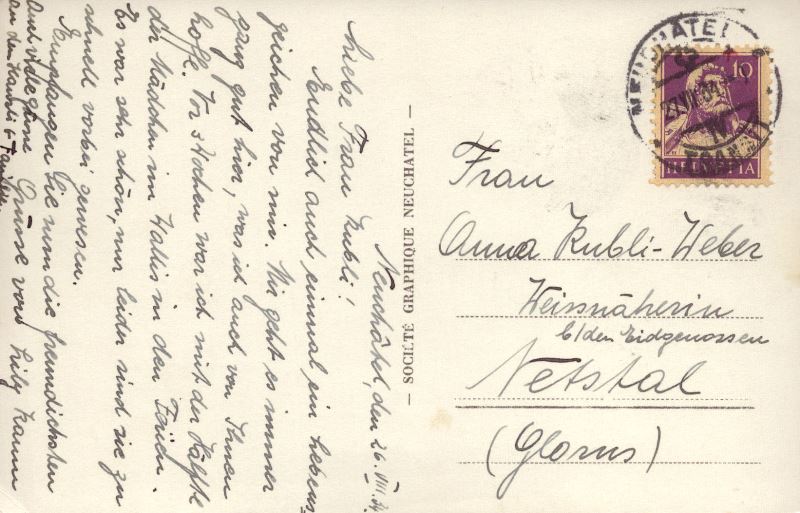 Neuchâtel, den 26. VIII. 34.
Liebe Frau Kubli!
Endlich auch einmal ein Lebens-
zeichen von mir. Mir geht es immer
ganz gut hier, was ich auch von Ihnen
hoffe. Vor 3 Wochen war ich mit der Hälfte
der Mädchen im Wallis in den Ferien.
Es war sehr schön, nur leider sind sie zu
schnell vorbei gewesen.
Empfangen Sie nun die freundlichsten
und viele Grüsse von Lily
an den Hausli & Familie.
— SOCIÉTÉ GRAPHIQUE NEUCHATEL —
NEUCHATEL
10
HELVETIA
Frau
Anna Kubli-Weber
Weissnäherin
b/den Eidgenossen
Netstal
(Glarus)